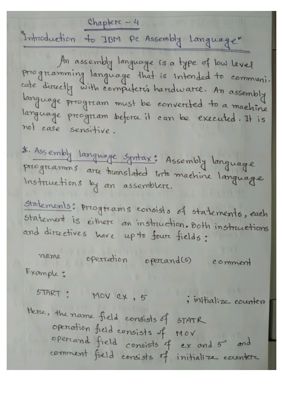 Chapter - 4
"Introduction to IBM PC Assembly Language"
An assembly language is a type of low level
programming language that is intended to communi-
cate directly with computer's hardware. An assembly
language program must be converted to a machine
language program before it can be executed. It is
not case sensitive.
Assembly language Syntax: Assembly language
programs are translated into machine language
Instructions by an assembler.
Statements: programs consists of statements, each
statement is either an instruction. Both instructions
and directives have up to four fields:
name operation operand(s) comment
Example:
START: MOV cx, 5 ; initialize counter
Here, the name field consists of STATR
operation field consists of MOV
operand field consists of cx and 5 and
comment field consists of initialize counter